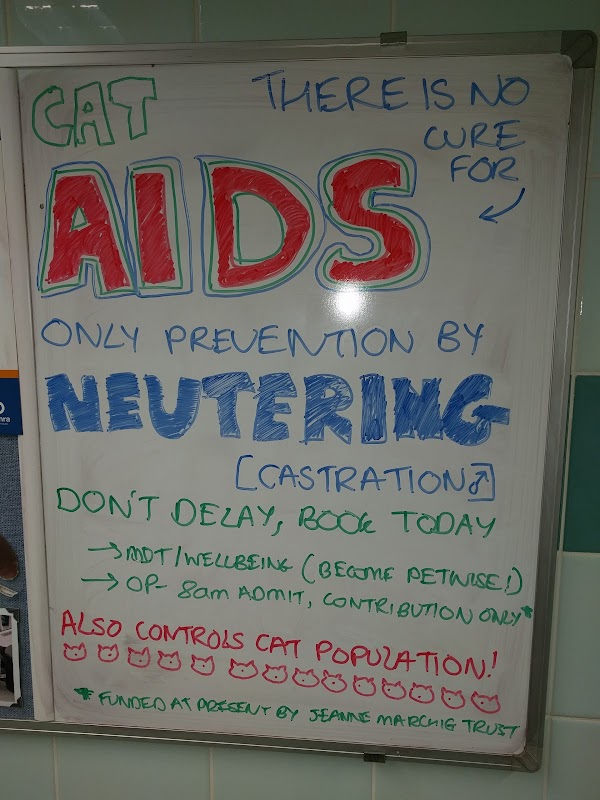 CAT
THERE IS NO
CURE
FOR
AIDS
ONLY PREVENTION BY
NEUTERING
[CASTRATION♂]
DON'T DELAY, BOOK TODAY
→ MDT/WELLBEING (BECOME PETWISE!)
→ OP- 8am ADMIT, CONTRIBUTION ONLY*
ALSO CONTROLS CAT POPULATION!
* FUNDED AT PRESENT BY JEANNE MARCHIG TRUST